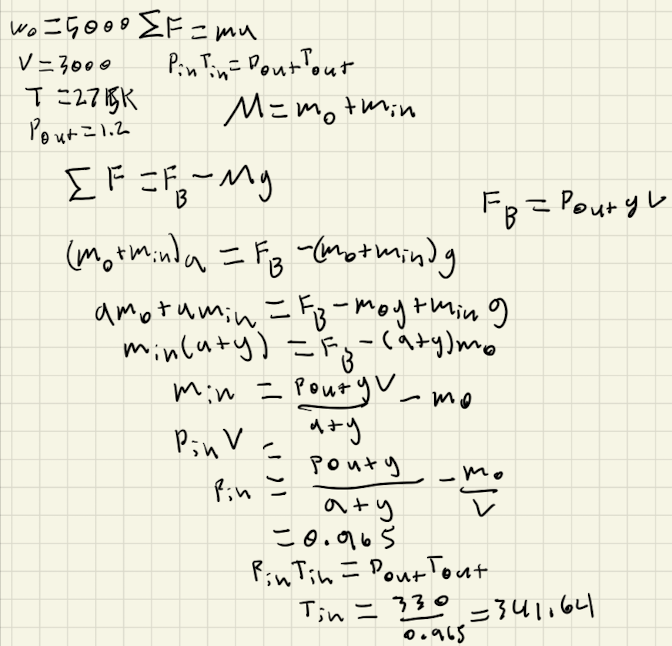 w₀ = 5000 ΣF = ma
V = 3000 ρin Tin = ρout Tout
T = 275K
M = m₀ + min
ρout = 1.2
ΣF = F_B - Mg
F_B = ρout g V
(m₀ + min)a = F_B - (m₀ + min)g
am₀ + amin = F_B - m₀g + min g
min(a+g) = F_B - (a+g)m₀
min = ρout g V / (a+g) - m₀
ρin V =
ρin = ρout g / (a+g) - m₀ / V
= 0.965
ρin Tin = ρout Tout
Tin = 330 / 0.965 = 341.64